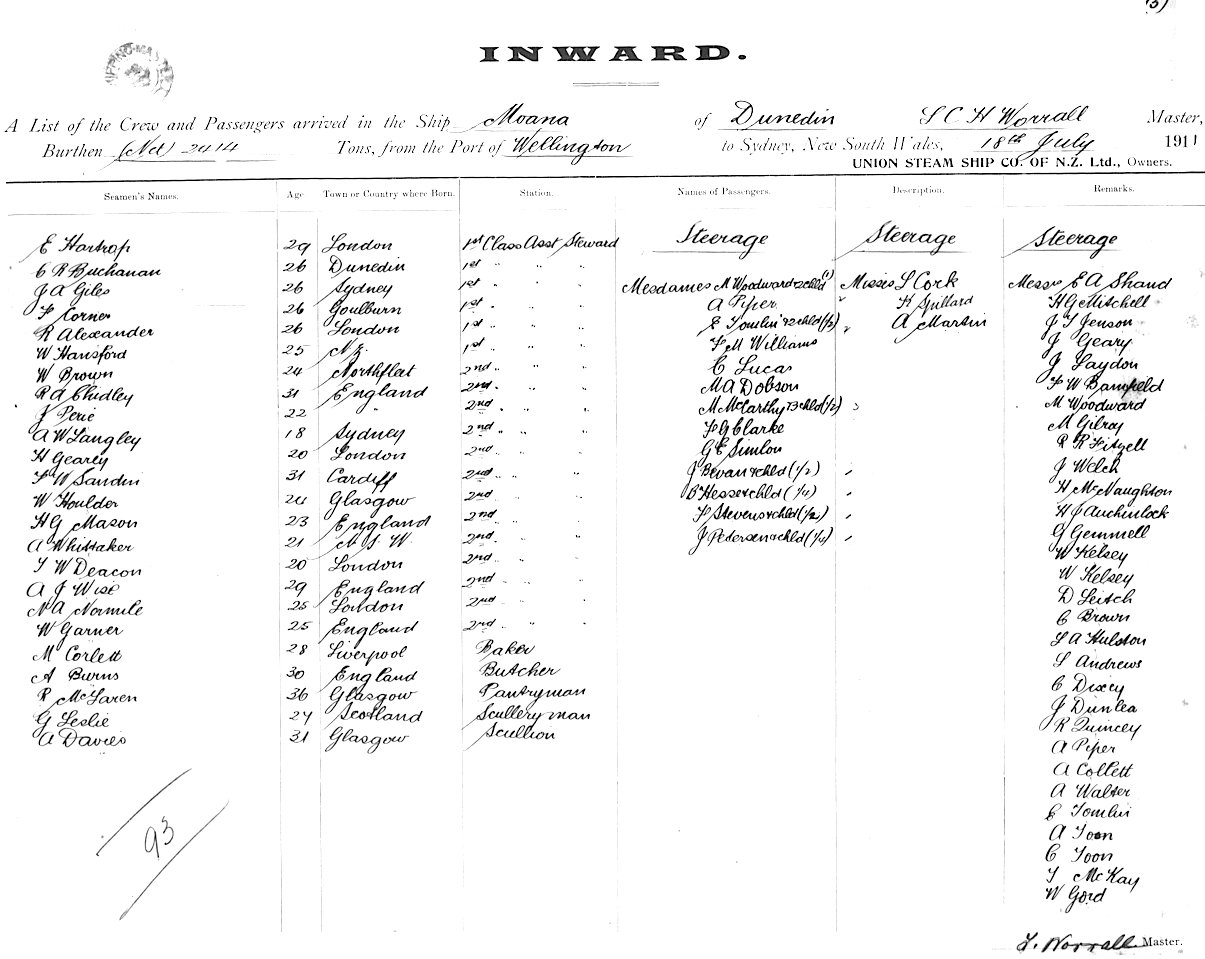 (5)
INWARD.
A List of the Crew and Passengers arrived in the Ship Moana of Dunedin S C H Worrall Master,
Burthen (Nd) 2414 Tons, from the Port of Wellington to Sydney, New South Wales, 18th July 1911
UNION STEAM SHIP CO. OF N.Z. Ltd., Owners.
Seamen's Names. Age Town or Country where Born. Station. Names of Passengers. Description. Remarks.
Steerage Steerage Steerage
E Hartrop 29 London 1st Class Asst Steward
C R Buchanan 26 Dunedin 1st " " "
J A Giles 26 Sydney 1st " " " Mesdames M Woodward + schld (1) Misses L Cork Messrs E A Shand
F Corner 26 Goulburn 1st " " " A Piper " H Spillard H G Mitchell
R Alexander 26 London 1st " " " E Tomlin + 2 chld (1/2) " A Martin J T Jenson
W Hansford 25 N.Z. 1st " " " F M Williams J Geary
W Brown 24 Northfleet 2nd " " " C Lucas J Laydon
R A Chidley 31 England 2nd " " " M A Dobson F W Bamfield
J Perie 22 " 2nd " " " M McCarthy + 3 chld (1/2) M Woodward
A W Langley 18 Sydney 2nd " " " F G Clarke M Gilray
H Gearey 20 London 2nd " " " G E Simlon R R Fitzell
F W Sandin 31 Cardiff 2nd " " " J Bevan + chld (1/2) J Welch
W Houlder 24 Glasgow 2nd " " " B Hesse + chld (1/4) H McNaughton
H G Mason 23 England 2nd " " " F Stevens + chld (1/2) H J Auchinlock
A Whittaker 21 N.S.W 2nd " " " J Pedersen + chld (1/4) G Gemmell
T W Deacon 20 London 2nd " " " W Kelsey
A J Wise 29 England 2nd " " " W Kelsey
N A Normile 25 London 2nd " " " D Leitch
W Garner 25 England 2nd " " " C Brown
M Corlett 28 Liverpool Baker L A Hulston
A Burns 30 England Butcher S Andrews
R McLaren 36 Glasgow Pantryman C Dixey
G Leslie 24 Scotland Sculleryman J Dunlea
A Davies 31 Glasgow Scullion R Quincey
A Piper
A Collett
A Walter
E Tomlin
A Toon
C Toon
T McKay
W Gord
93
Worrall Master.